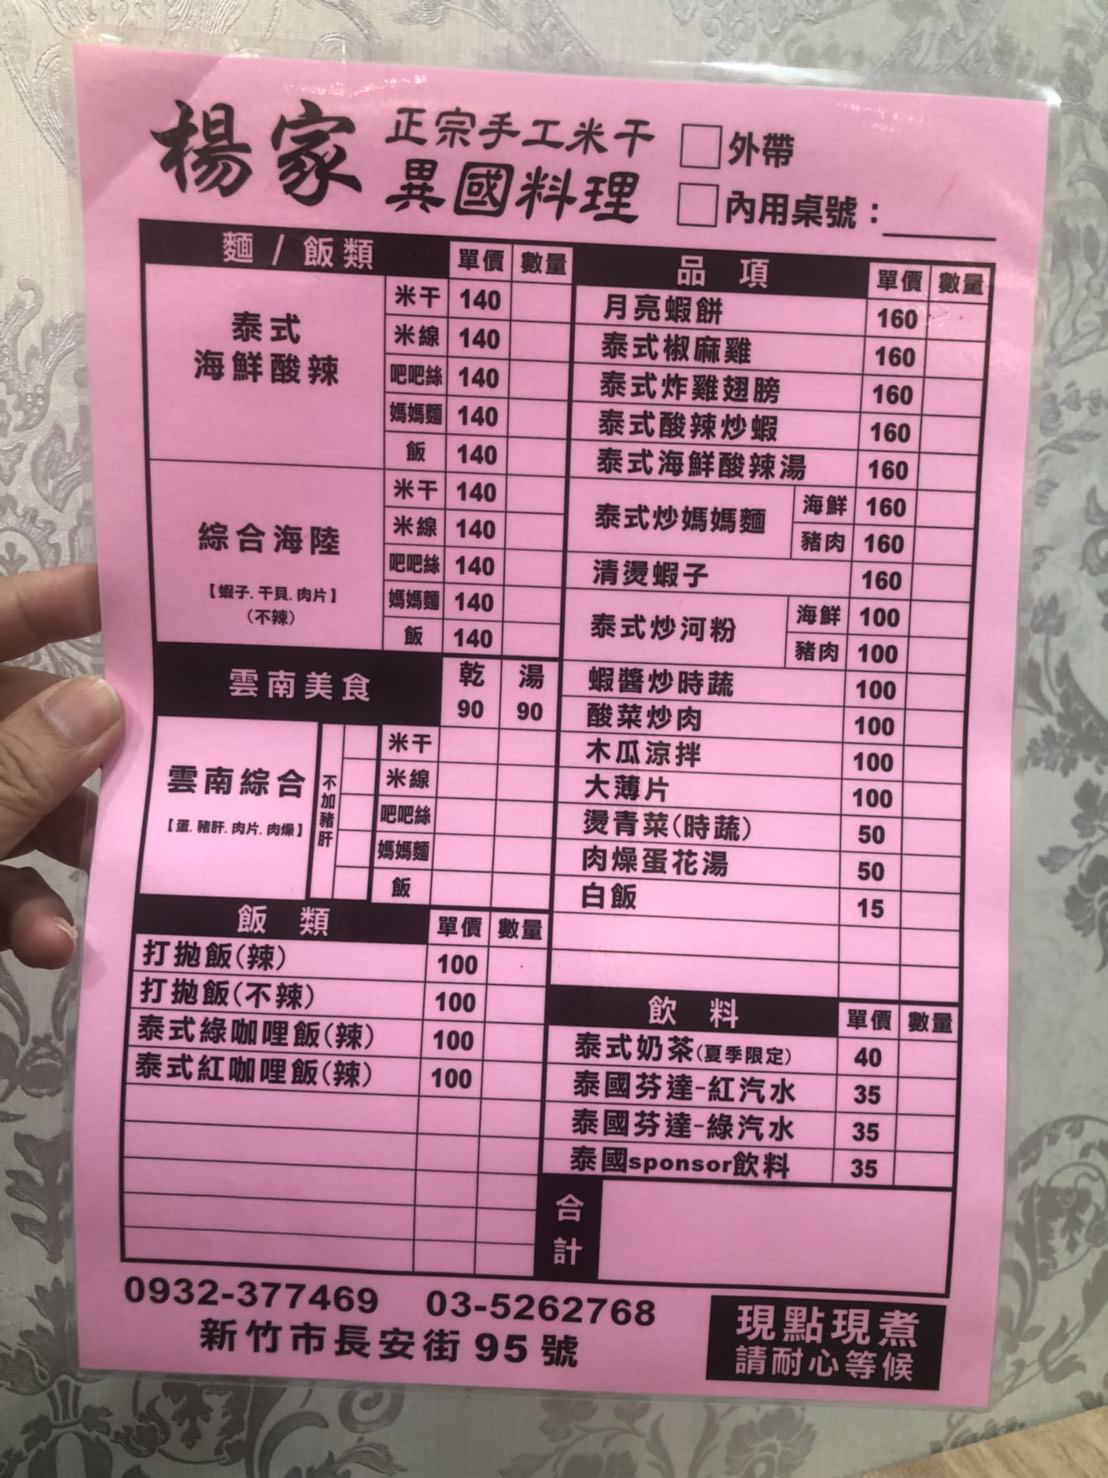 楊家
正宗手工米干
異國料理
外帶
內用桌號：
麵/飯類 單價 數量
泰式
海鮮酸辣
米干 140
米線 140
吧吧絲 140
媽媽麵 140
飯 140
綜合海陸
【蝦子.干貝.肉片】
（不辣）
米干 140
米線 140
吧吧絲 140
媽媽麵 140
飯 140
雲南美食 乾 湯
90 90
雲南綜合
【蛋.豬肝.肉片.肉燥】
不加豬肝
米干
米線
吧吧絲
媽媽麵
飯
飯類 單價 數量
打拋飯(辣) 100
打拋飯(不辣) 100
泰式綠咖哩飯(辣) 100
泰式紅咖哩飯(辣) 100
品項 單價 數量
月亮蝦餅 160
泰式椒麻雞 160
泰式炸雞翅膀 160
泰式酸辣炒蝦 160
泰式海鮮酸辣湯 160
泰式炒媽媽麵
海鮮 160
豬肉 160
清燙蝦子 160
泰式炒河粉
海鮮 100
豬肉 100
蝦醬炒時蔬 100
酸菜炒肉 100
木瓜涼拌 100
大薄片 100
燙青菜(時蔬) 50
肉燥蛋花湯 50
白飯 15
飲料 單價 數量
泰式奶茶(夏季限定) 40
泰國芬達-紅汽水 35
泰國芬達-綠汽水 35
泰國sponsor飲料 35
合計
0932-377469 03-5262768
新竹市長安街95號
現點現煮
請耐心等候